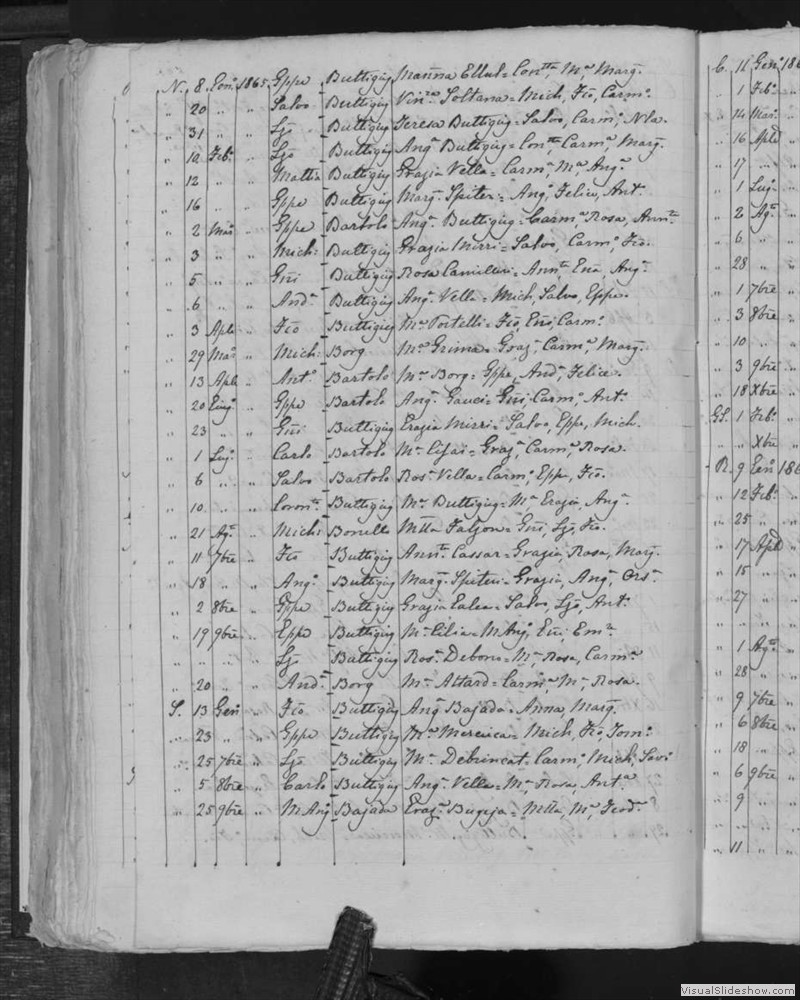 N. 8 Gen. 1865. Gppe Buttigieg Marina Ellul = Con.tta, M.a Marg.
" 20 " " Salvo Buttigieg Vin.za Soltana = Mich, Fco, Carm.
" 31 " " Buttigieg Teresa Buttigieg = Salvo, Carm, Nla.
" 10 Feb. " Buttigieg Ang.a Buttigieg = Con.tta Carm.a Marg.
" 12 " " Mattia Buttigieg Grazia Vella = Carm.a M.a Ang.a
" 16 " " Gppe Buttigieg Marg. Spiteri = Ang, Felice, Ant.
" 2 Mar. " Gppe Bartolo Ang. Buttigieg = Carm.a Rosa, Ann.ta
" 3 " " Mich: Buttigieg Grazia Mizzi = Salvo, Carm, Fco.
" 5 " " Gni Buttigieg Rosa Camilleri = Ann.ta Ang.
" 6 " " And.a Buttigieg Ang. Vella = Mich, Salvo, Gppe.
" 3 Aple " Fco Buttigieg M.a Portelli = Fco, Carm.
" 29 Mar. " Mich: Borg M.a Grima = Graz, Carm.a Marg.
" 13 Aple " Ant.o Bartolo M.a Borg = Gppe, And, Felice.
" 20 " Gppe Bartolo Ang. Gauci = Gni, Carm, Ant.
" 23 " " Gni Buttigieg Grazia Mizzi = Salvo, Gppe, Mich.
" 1 Lug. " Carlo Bartolo M.a = Graz, Carm.a Rosa.
" 6 " " Salvo Bartolo Ros.a Vella = Carm, Gppe, Fco.
" 10 " " Buttigieg M.a Buttigieg = M.a Grazia, Ang.
" 21 Ag. " Mich: M.lla Falzon = Gni, Fco.
" 11 7bre " Fco Buttigieg Ann.ta Cassar = Grazia, Rosa, Marg.
" 18 " " Ang. Buttigieg Marg. Spiteri = Grazia, Ang, Ors.
" 2 8bre " Gppe Buttigieg Grazia Galea = Salvo, Ant.
" 19 9bre " Gppe Buttigieg M.a = M Ang,
" " " " Buttigieg Ros.a Debono = M.a Rosa, Carm.a
" 20 " " And.a Borg M.a Attard = Carm.a M.a Rosa.
S. 13 Gen. " Fco Buttigieg Ang. Bajada = Anna, Marg.
" 23 " " Gppe Buttigieg Mercieca = Mich, Fco, Tom.
" 25 7bre " Buttigieg M.a Debrincat. Carm, Mich, Salvo.
" 5 8bre " Carlo Buttigieg Ang. Vella = M.a Rosa, Ant.a
" 25 9bre " M Ang Bajada Graz. Bugeja = M.lla, M.a Teod.a
C. 11 Gen.
" 1 Feb.
" 14 Mar.
" 16 Aple
" 17 "
" 1 Lug.
" 2 Ag.
" 6 "
" 28 "
" 1 7bre
" 3 8bre
" 10 "
" 3 9bre
" 18 Xbre
1 Feb.
" Xbre
R. 9 Gen.
" 12 Feb.
" 25 "
" 17 Aple
" 15 "
" 27 "
" 1 Ag.
" 28 "
" 9 7bre
" 6 8bre
" 18 "
" 6 9bre
" 9 "
" 11 "
VisualSlideshow.com